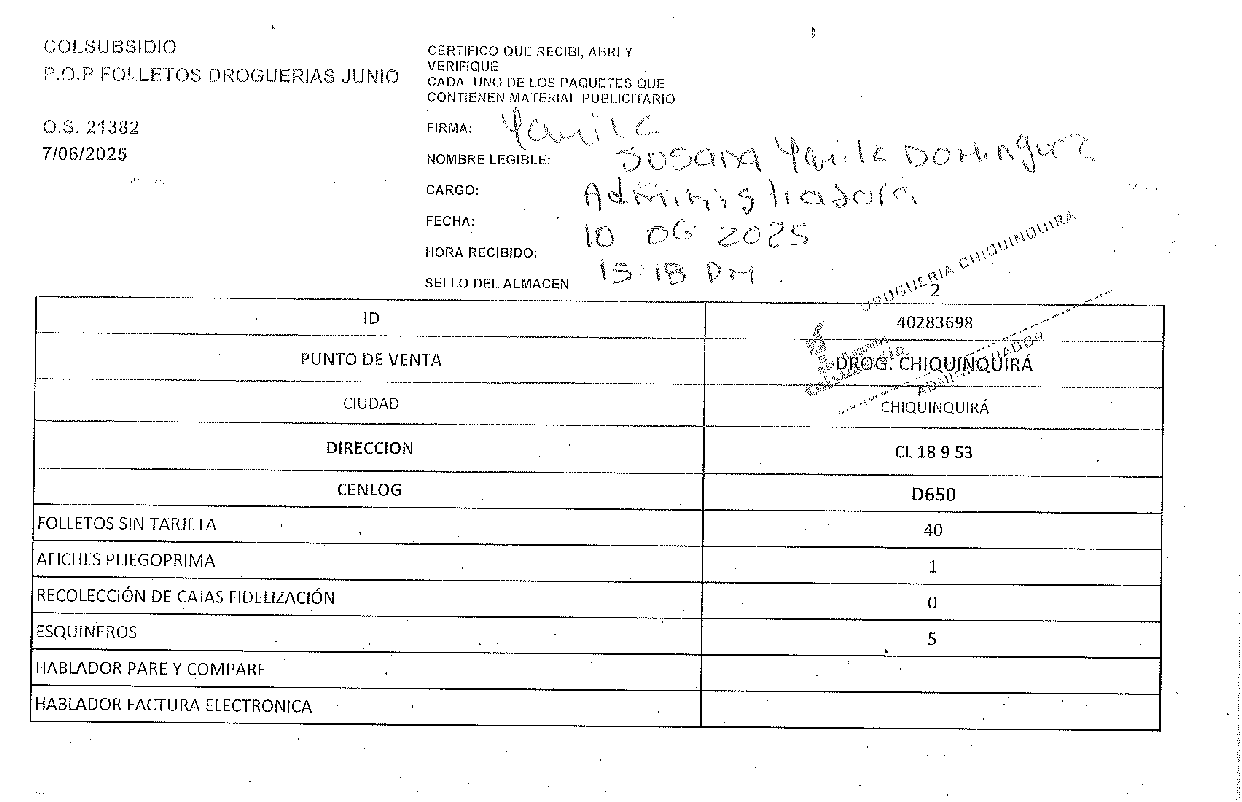 COLSUBSIDIO
P.O.P FOLLETOS DROGUERIAS JUNIO
O.S. 21382
7/06/2025
CERTIFICO QUE RECIBI, ABRI Y
VERIFIQUE
CADA UNO DE LOS PAQUETES QUE
CONTIENEN MATERIAL PUBLICITARIO
FIRMA: Yamile
NOMBRE LEGIBLE: Susana Yamile Dominguez
CARGO: Administradora
FECHA: 10 06 2025
HORA RECIBIDO: 15:18 PM
SELLO DEL ALMACEN
DROGUERIA CHIQUINQUIRA
2
ADMINISTRADOR
ID 40283698
PUNTO DE VENTA DROG. CHIQUINQUIRÁ
CIUDAD CHIQUINQUIRÁ
DIRECCION CL 18 9 53
CENLOG D650
FOLLETOS SIN TARJETA 40
AFICHES PLIEGOPRIMA 1
RECOLECCIÓN DE CAJAS FIDELIZACIÓN 0
ESQUINEROS 5
HABLADOR PARE Y COMPARE
HABLADOR FACTURA ELECTRONICA